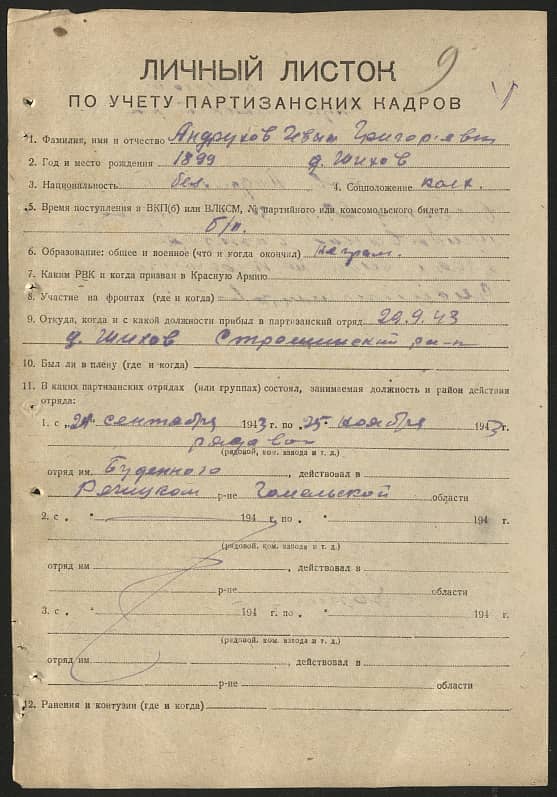 9
ЛИЧНЫЙ ЛИСТОК
ПО УЧЕТУ ПАРТИЗАНСКИХ КАДРОВ
1. Фамилия, имя и отчество Андрухов Иван Григорьевич
2. Год и место рождения 1899 д. Шихов
3. Национальность бел. 4. Соцположение колх.
5. Время поступления в ВКП(б) или ВЛКСМ, № партийного или комсомольского билета
б/п.
6. Образование: общее и военное (что и когда окончил) неграм.
7. Каким РВК и когда призван в Красную Армию
8. Участие на фронтах (где и когда)
9. Откуда, когда и с какой должности прибыл в партизанский отряд 29.9.43
д. Шихов Стрешинский р-н
10. Был ли в плену (где и когда)
11. В каких партизанских отрядах (или группах) состоял, занимаемая должность и район действия
отряда:
1. с „ сентября 1943 г. по „25 ноября 1943 г.
рядовой
(рядовой, ком. взвода и т. д.)
отряд им Буденного, действовал в
Речицком р-не Гомельской области
2. с „ “ 194 г. по „ “ 194 г.
(рядовой, ком. взвода и т. д.)
отряд им , действовал в
р-не области
3. с „ “ 194 г. по „ “ 194 г.
(рядовой, ком. взвода и т. д.)
отряд им , действовал в
р-не области
12. Ранения и контузии (где и когда)